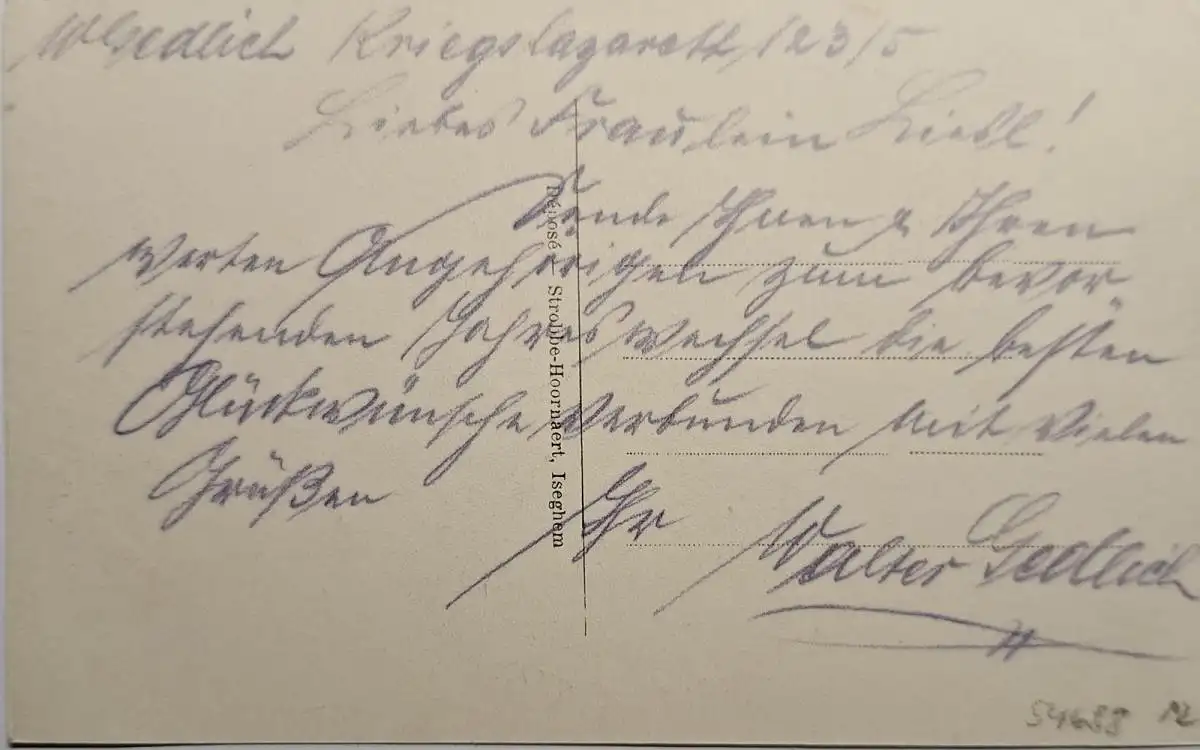 W Sedlich Kriegslazarett 123/5
Liebes Fraulein Liesl!
Sende Ihnen & Ihren
werten Angehörigen zum bevor-
stehenden Jahreswechsel die besten
Glückwünsche verbunden mit vielen
Grüßen
Ihr Walter Sedlich
Déposé – Strobbe-Hoornaert, Iseghem
54688 12